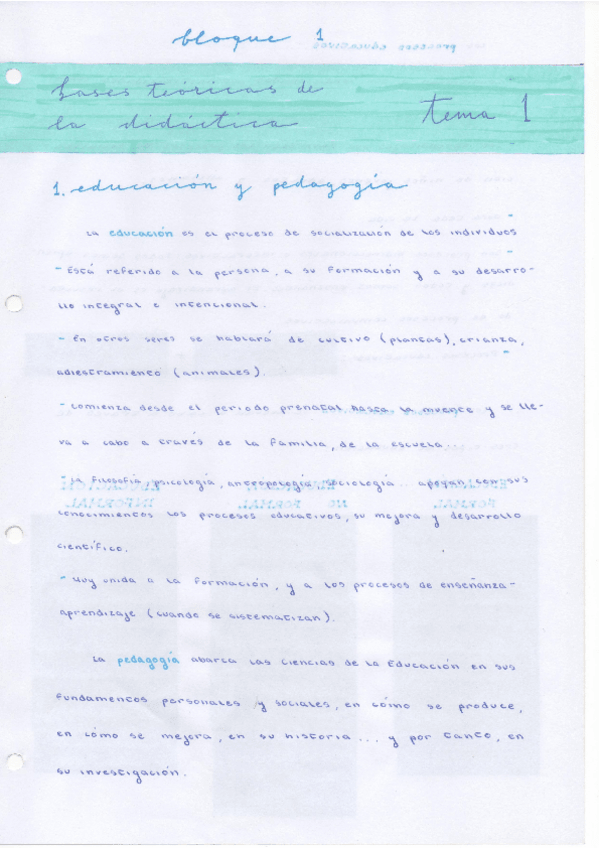 bloque 1
bases teóricas de
la didáctica
tema 1
1. educación y pedagogía
La educación es el proceso de socialización de los individuos
- Está referido a la persona, a su formación y a su desarro-
llo integral e intencional.
- En otros seres se hablará de cultivo (plantas), crianza,
adiestramiento (animales).
- comienza desde el periodo prenatal hasta la muerte y se lle-
va a cabo a través de la familia, de la escuela...
- La filosofía, psicología, antropología, sociología apoyan con sus
conocimientos los procesos educativos, su mejora y desarrollo
científico.
- Muy unida a la formación, y a los procesos de enseñanza-
aprendizaje (cuando se sistematizan).
La pedagogía abarca las ciencias de la Educación en sus
fundamentos personales y sociales, en cómo se produce,
en cómo se mejora, en su historia... y por tanto, en
su investigación.